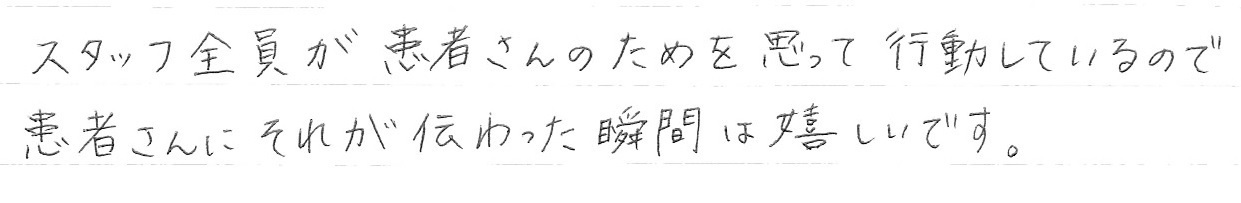 スタッフ全員が患者さんのためを思って行動しているので
患者さんにそれが伝わった瞬間は嬉しいです。